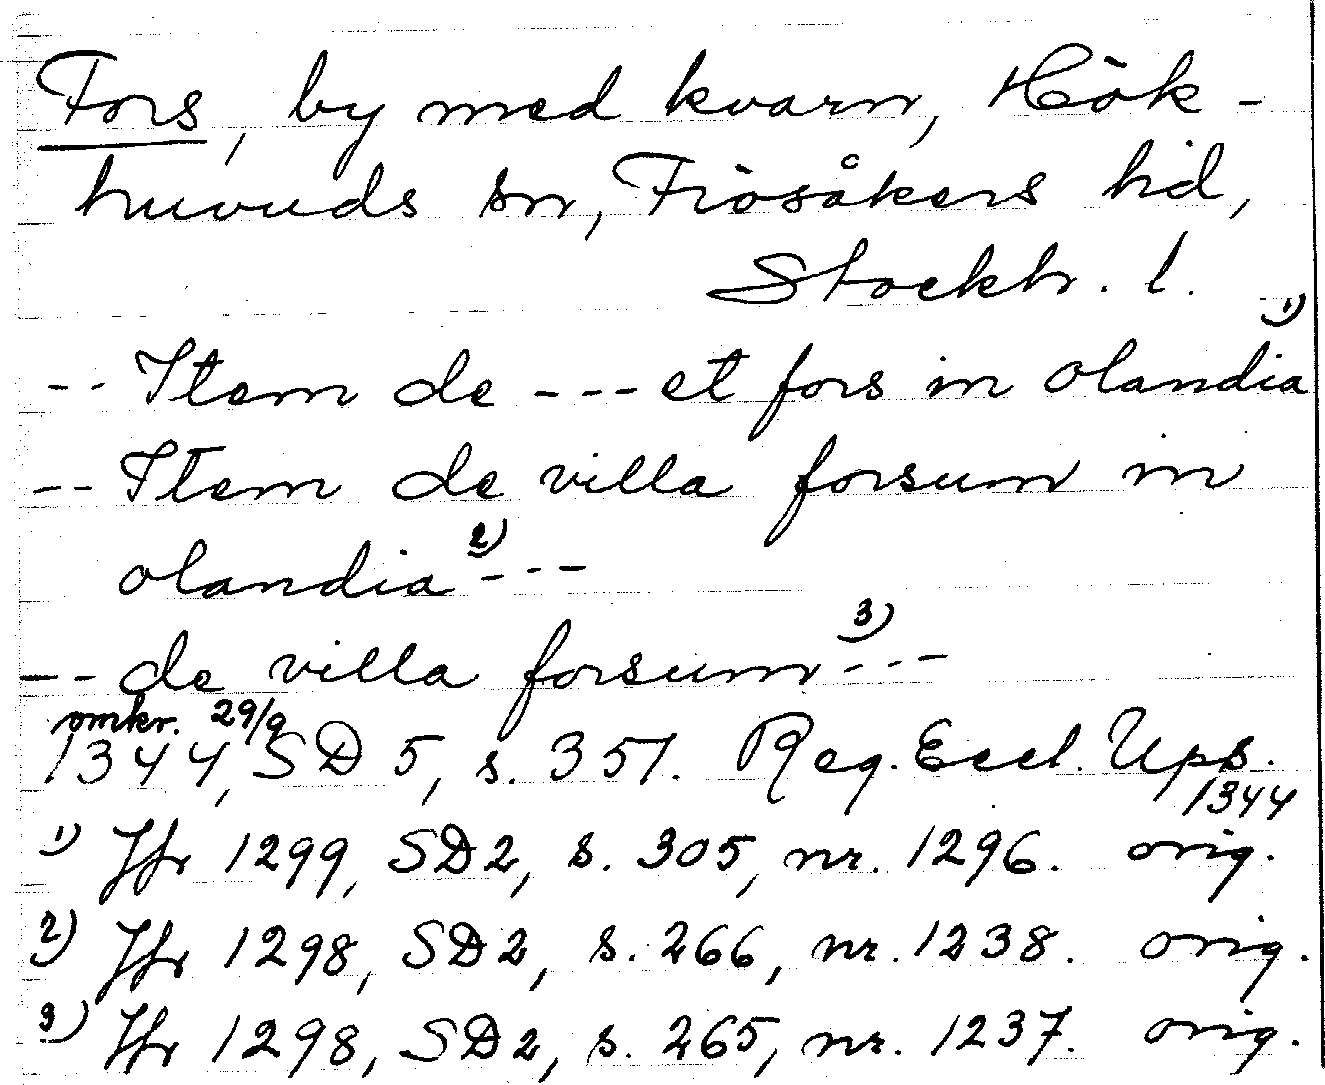 Fors, by med kvarn, Hök-
huvuds sn, Frösåkers hd,
Stockh. l.
-- Item de --- et fors in olandia 1)
-- Item de villa forsum in
olandia 2) ---
-- de villa forsum 3) ---
omkr. 29/9
1344, SD 5, s. 351. Reg. Eccl. Ups.
1344
1) Jfr 1299, SD 2, s. 305, nr. 1296. orig.
2) Jfr 1298, SD 2, s. 266, nr. 1238. orig.
3) Jfr 1298, SD 2, s. 265, nr. 1237. orig.